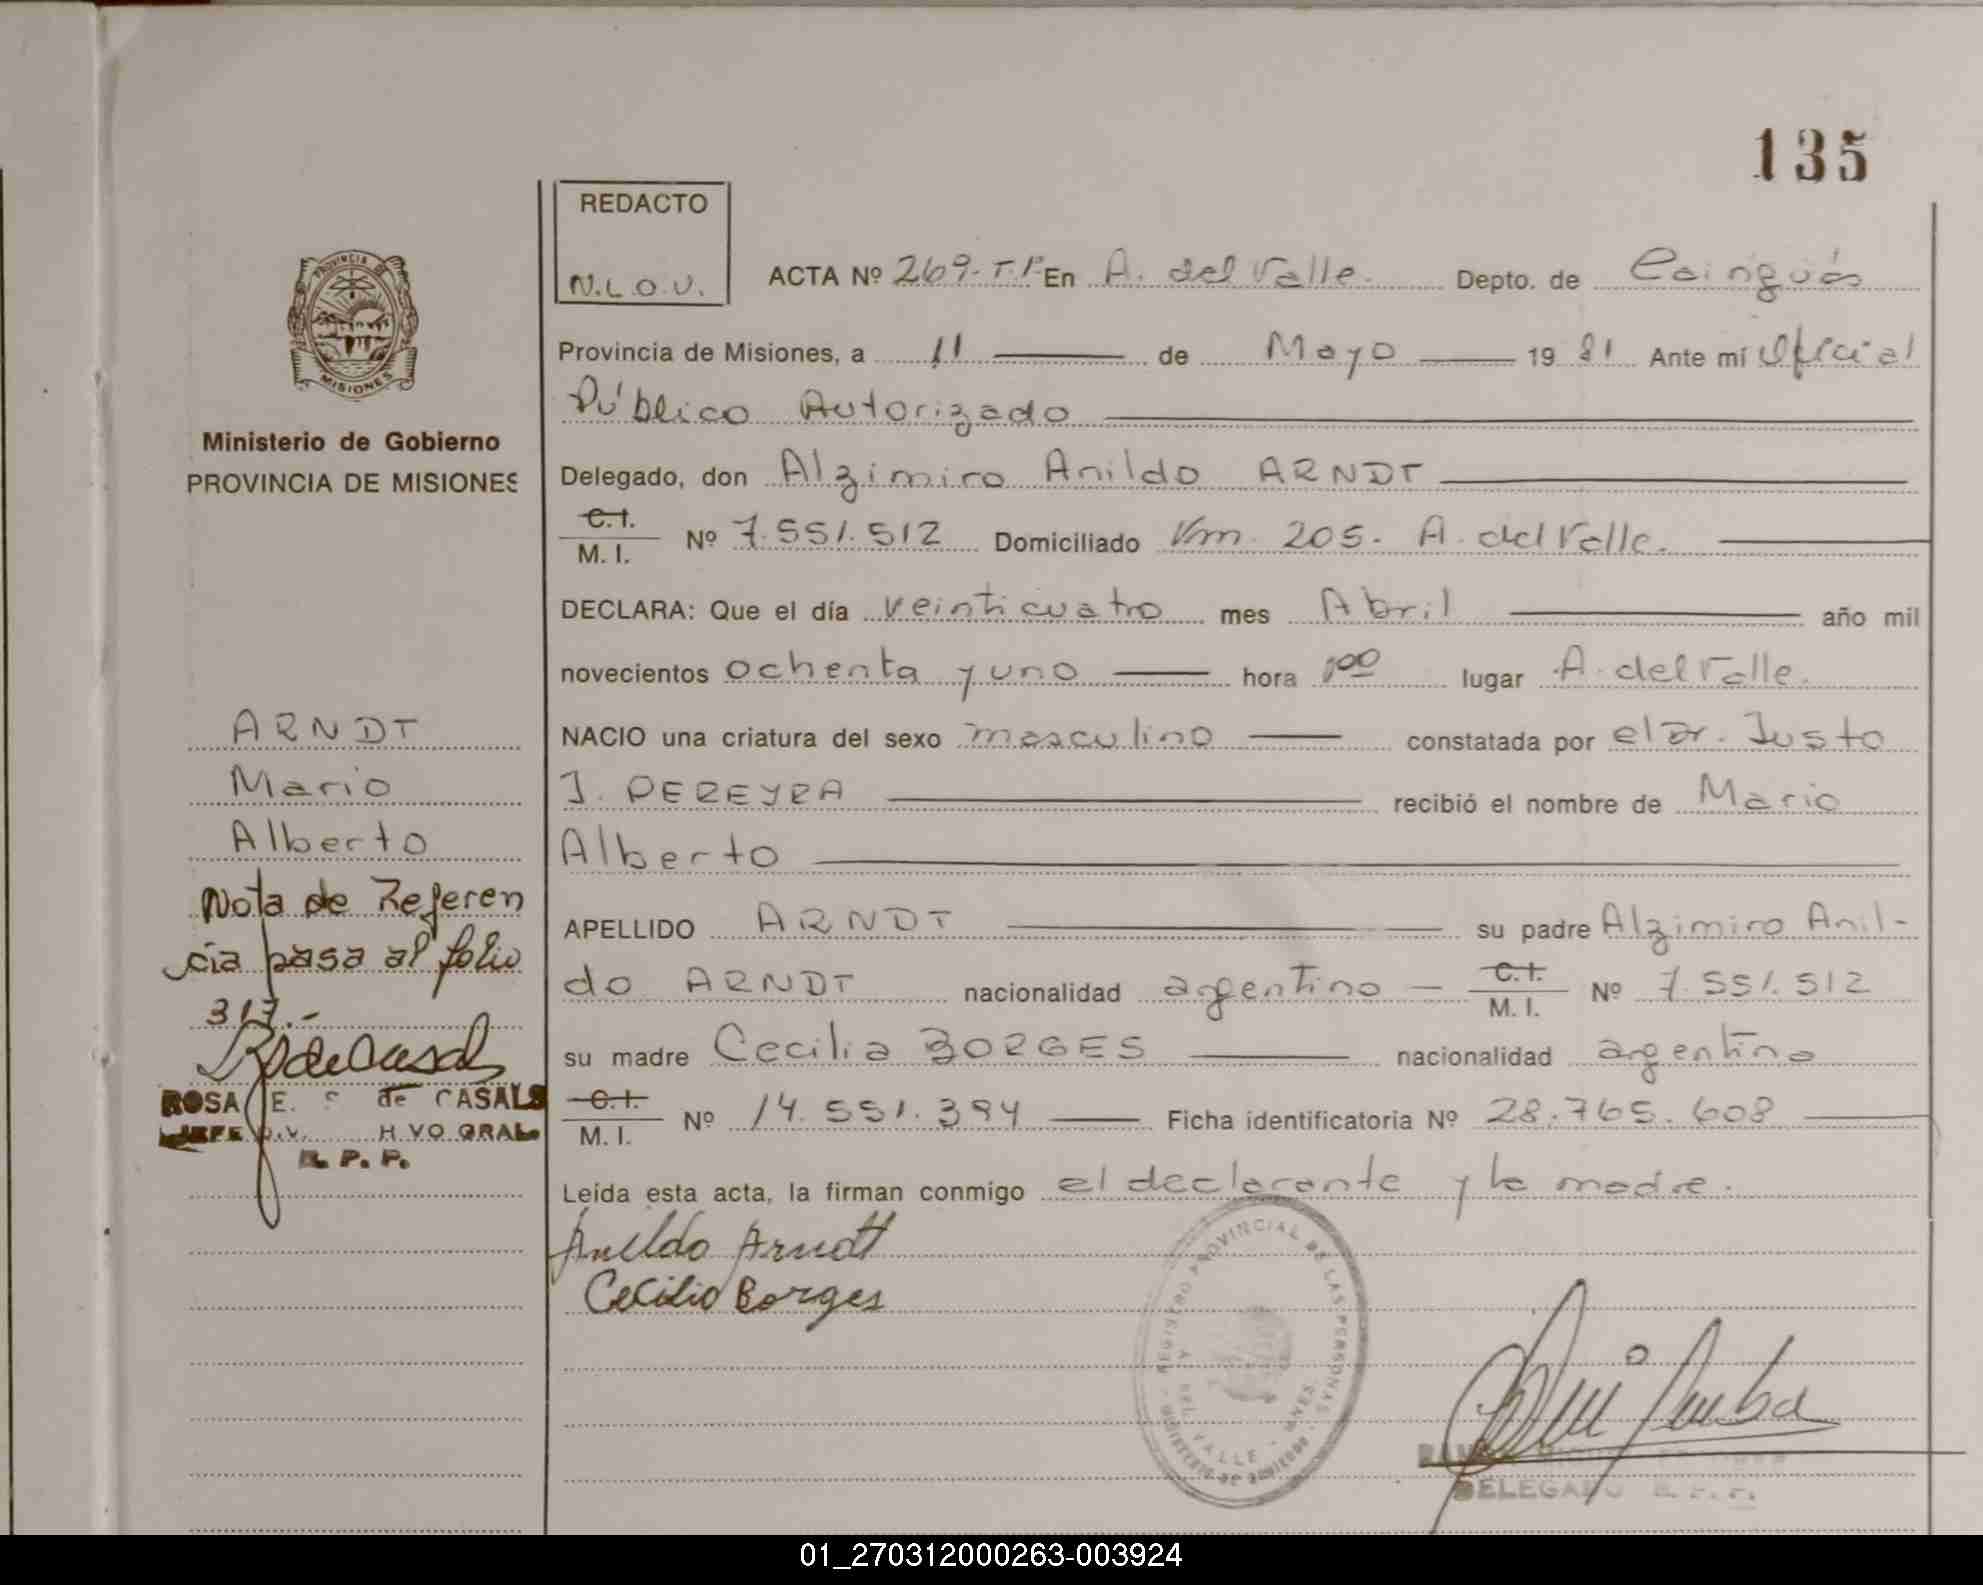 135
REDACTO
N.L.O.V.
ACTA Nº 269-T.I. En A. del Valle. Depto. de Cainguás
Provincia de Misiones, a 11 de Mayo 19 81 Ante mí Oficial
Público Autorizado
Delegado, don Alzimiro Anildo ARNDT
C.I.
M. I. Nº 7.551.512 Domiciliado Km. 205. A. del Valle.
DECLARA: Que el día veinticuatro mes Abril año mil
novecientos ochenta y uno hora 1⁰⁰ lugar A. del Valle.
NACIO una criatura del sexo masculino constatada por el Dr. Justo
J. PEREYRA recibió el nombre de Mario
Alberto
APELLIDO ARNDT su padre Alzimiro Anil-
do ARNDT nacionalidad argentino C.I.
M. I. Nº 7.551.512
su madre Cecilia BORGES nacionalidad argentina
C.I.
M. I. Nº 14.551.394 Ficha identificatoria Nº 28.765.608
Leída esta acta, la firman conmigo el declarante y la madre.
Anildo Arndt
Cecilia Borges
REGISTRO PROVINCIAL DE LAS PERSONAS
MINISTERIO DE GOBIERNO
DEL VALLE - MNES.
DELEGADO R. P. P.
PROVINCIA DE
MISIONES
Ministerio de Gobierno
PROVINCIA DE MISIONES
ARNDT
Mario
Alberto
Nota de Referen
cia pasa al folio
317.-
ROSA E. S de CASALS
JEFE DIV. H VO GRAL.
R. P. P.
01_270312000263-003924